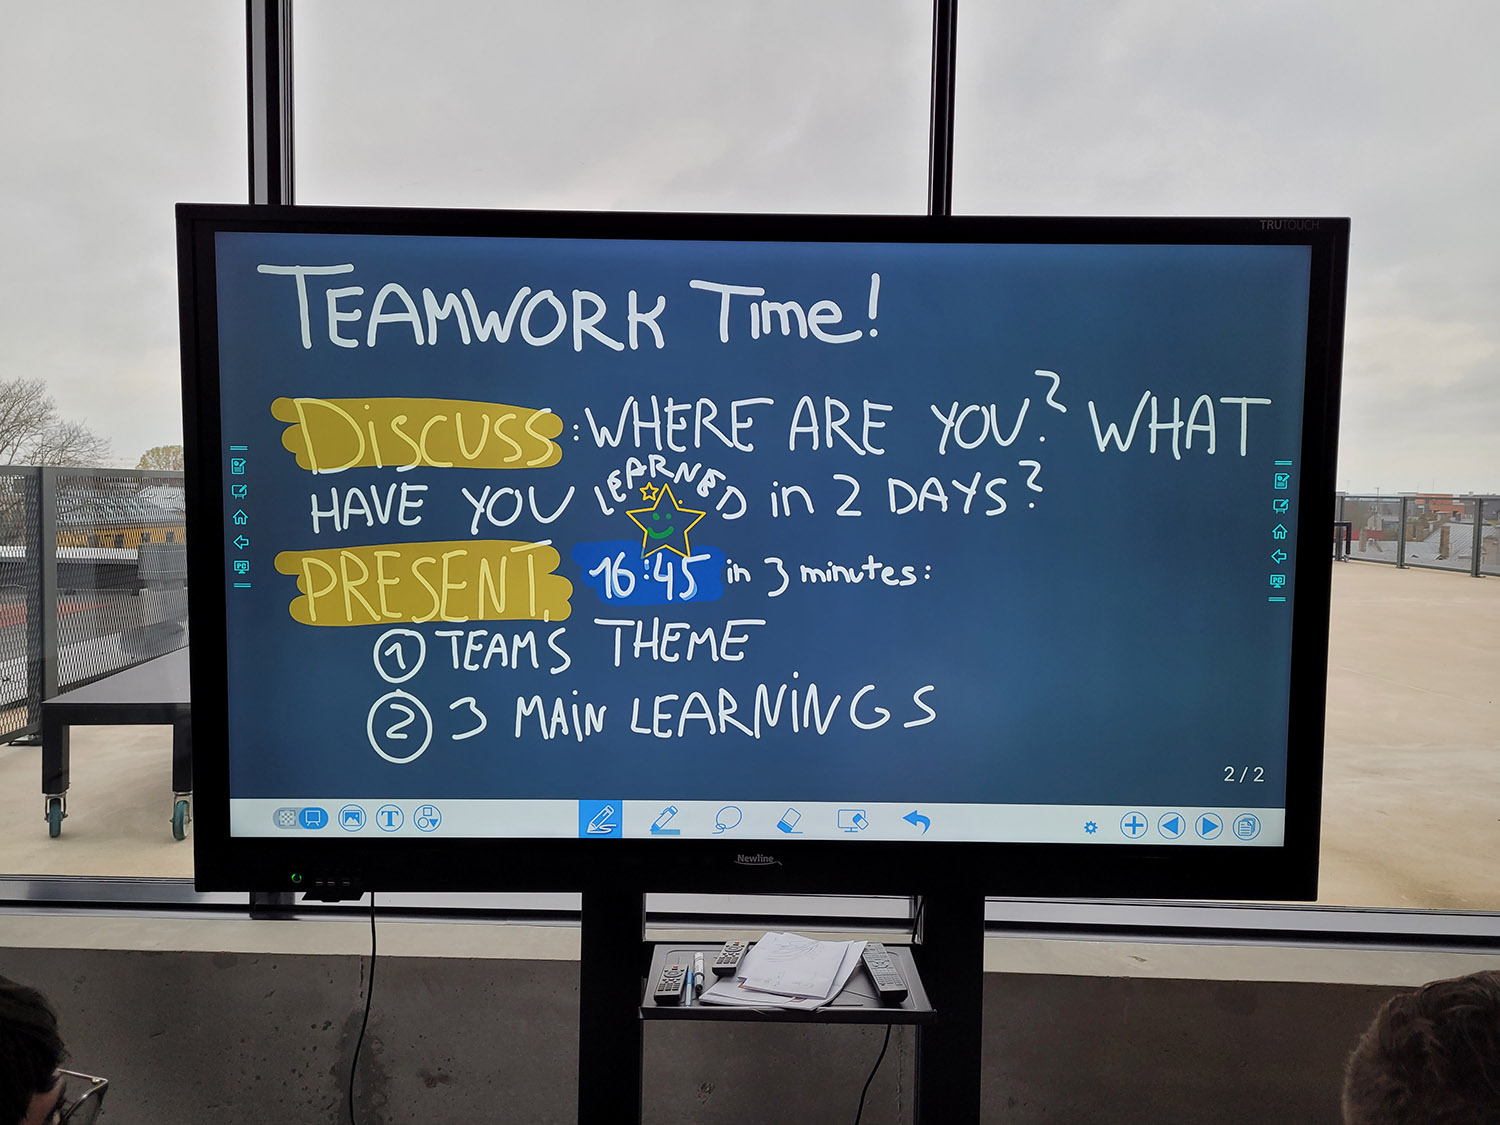 TRUTOUCH
TEAMWORK Time!
DISCUSS: WHERE ARE YOU? WHAT
HAVE YOU LEARNED in 2 DAYS?
PRESENT. 16:45 in 3 minutes:
1 TEAMS THEME
2 3 MAIN LEARNINGS
2/2
T
Newline